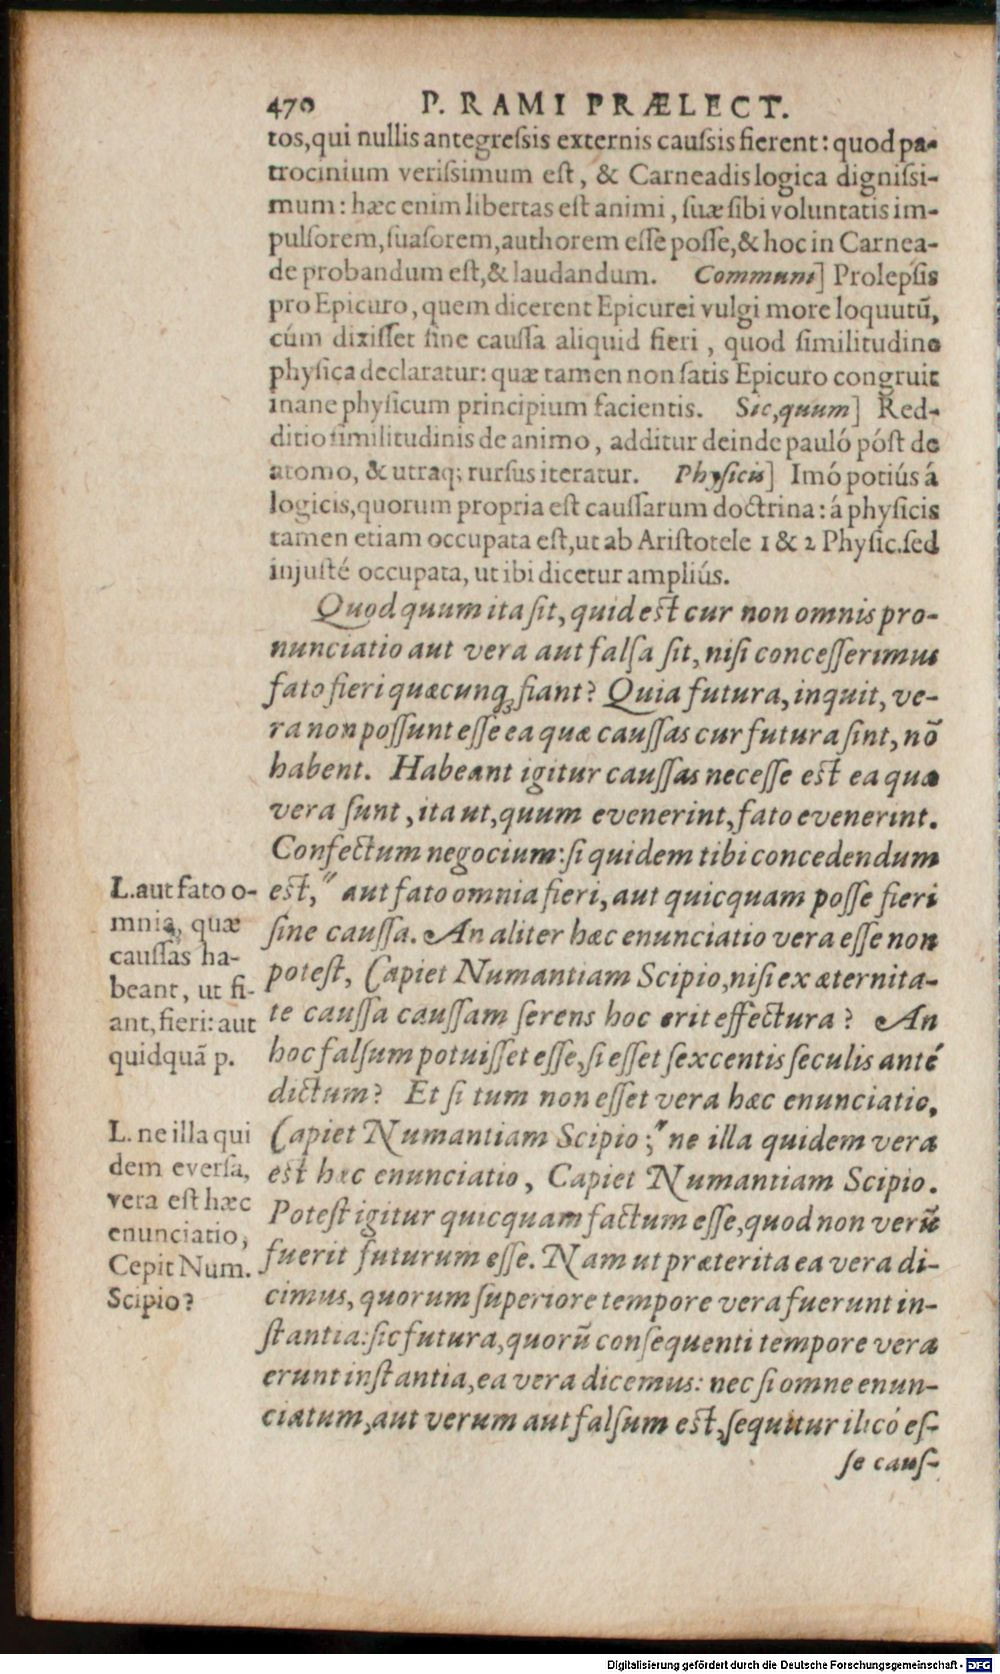 470 P. RAMI PRÆLECT.
tos,qui nullis antegreſsis externis cauſsis fierent: quod pa-
trocinium veriſsimum eſt, & Carneadis logica digniſsi-
mum: hæc enim libertas eſt animi, ſuæ ſibi voluntatis im-
pulſorem,ſuaſorem,authorem eſſe poſſe,& hoc in Carnea-
de probandum eſt,& laudandum. Communi] Prolepſis
pro Epicuro, quem dicerent Epicurei vulgi more loquutũ,
cúm dixiſſet ſine cauſſa aliquid fieri, quod ſimilitudine
phyſica declaratur: quæ tamen non ſatis Epicuro congruit
inane phyſicum principium facientis. Sic,quum] Red-
ditio ſimilitudinis de animo, additur deinde pauló póſt de
atomo, & utraq; rurſus iteratur. Phyſicis] Imó potiús á
logicis,quorum propria eſt cauſſarum doctrina: á phyſicis
tamen etiam occupata eſt,ut ab Ariſtotele 1 & 2 Phyſic.ſed
injuſté occupata, ut ibi dicetur ampliús.
Quod quum ita ſit, quid eſt cur non omnis pro-
nunciatio aut vera aut falſa ſit, niſi conceſſerimus
fato fieri quæcunq; fiant? Quia futura, inquit, ve-
ra non poſſunt eſſe ea quæ cauſſas cur futura ſint, nō
habent. Habeant igitur cauſſas neceſſe eſt ea quæ
vera ſunt, ita ut, quum evenerint, fato evenerint.
Confectum negocium: ſi quidem tibi concedendum
L. aut fato o-
mnia, quæ
cauſſas ha-
beant, ut fi-
ant, fieri: aut
quidquã p.
eſt, " aut fato omnia fieri, aut quicquam poſſe fieri
ſine cauſſa. An aliter hæc enunciatio vera eſſe non
poteſt, Capiet Numantiam Scipio, niſi ex æternita-
te cauſſa cauſſam ſerens hoc erit effectura? An
hoc falſum potuiſſet eſſe, ſi eſſet ſexcentis ſeculis anté
dictum? Et ſi tum non eſſet vera hæc enunciatio,
L. ne illa qui
dem everſa,
vera eſt hæc
enunciatio,
Cepit Num.
Scipio?
Capiet Numantiam Scipio; " ne illa quidem vera
eſt hæc enunciatio, Capiet Numantiam Scipio.
Poteſt igitur quicquam factum eſſe, quod non verũ
fuerit futurum eſſe. Nam ut præterita ea vera di-
cimus, quorum ſuperiore tempore vera fuerunt in-
ſtantia: ſic futura, quorũ conſequenti tempore vera
erunt inſtantia, ea vera dicemus: nec ſi omne enun-
ciatum, aut verum aut falſum eſt, ſequitur ilicó eſ-
ſe cauſ-
Digitalisierung gefördert durch die Deutsche Forschungsgemeinschaft - DFG